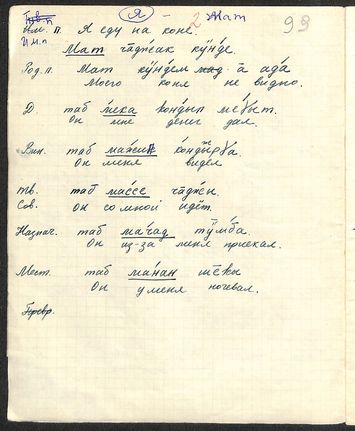 Я - Мат 99
Им. п. Я еду на коне.
Мат чаджак күнде.
Род. п. Мат күндем - а ада
Моего коня не видно.
Д. таб мека кондып меғыт.
Он мне денег дал.
Вин. таб мажик кондырға.
Он меня видел
Тв. таб массе чаджы.
Сов. Он со мной идёт.
Назнач. таб мачад тӱмба.
Он из-за меня приехал.
Мест. таб манан шекы
Он у меня ночевал.
Превр.